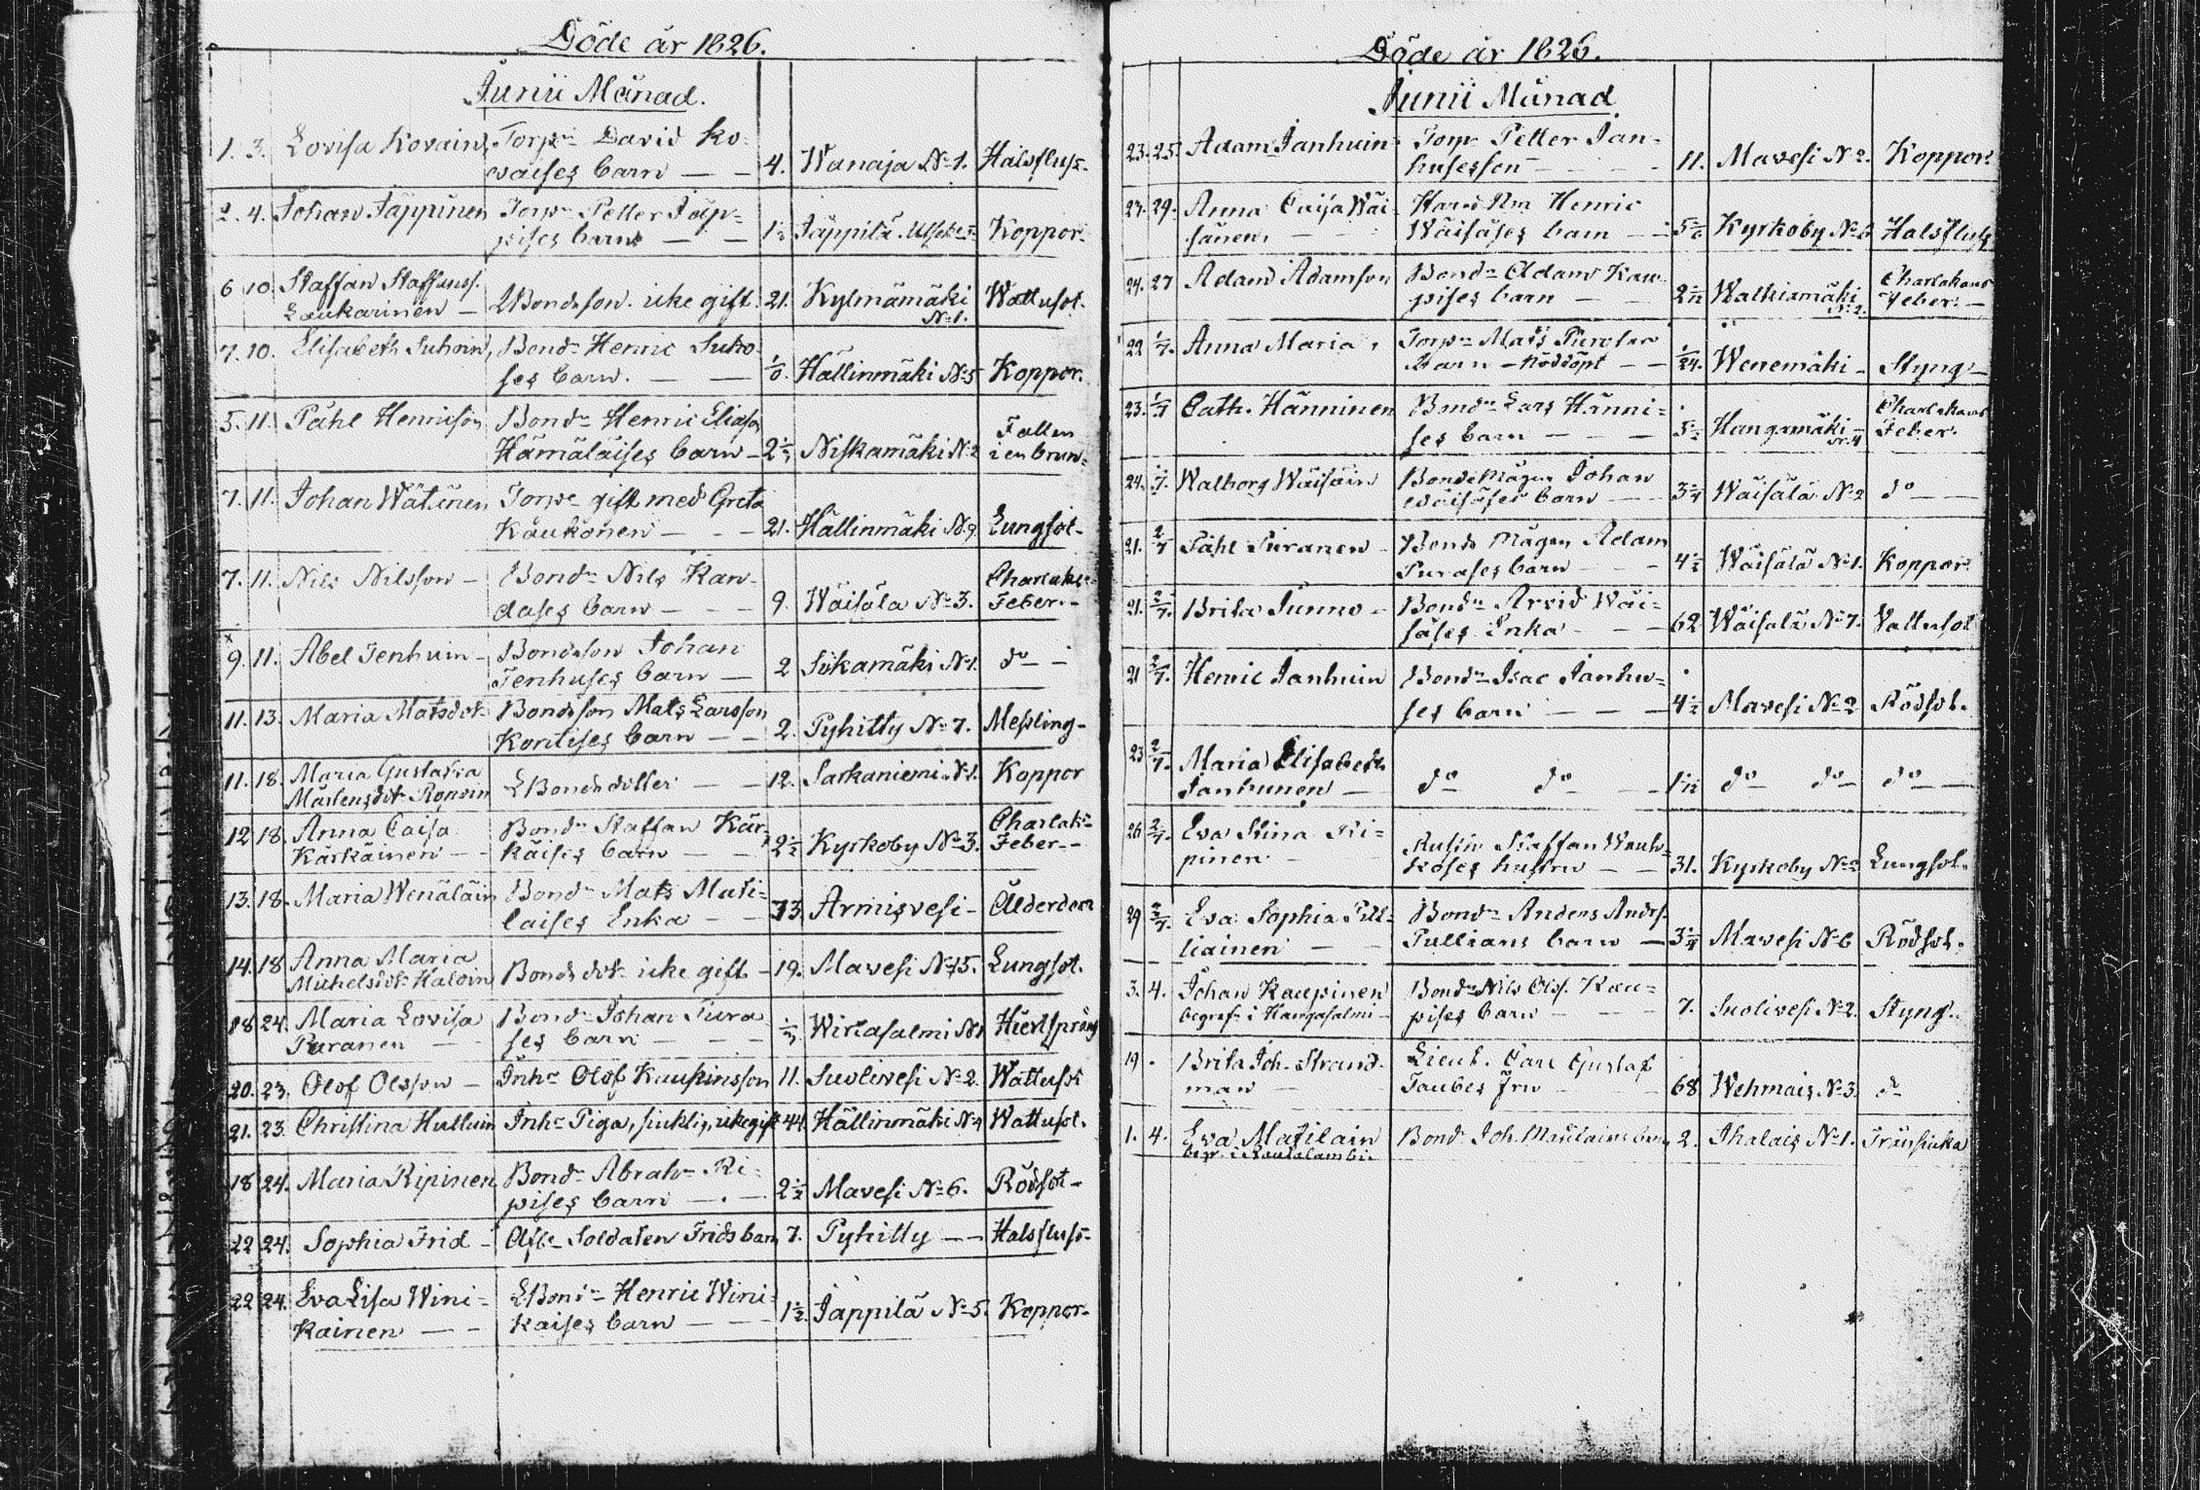 Döde år 1826.
Junii Månad.
1. 3. Lovisa Kovain, Torp:n David Ko-
vaises barn — — 4. Wanaja N:o 1. Halsfluss-
2. 4. Johan Jäppinen Torp:n Petter Jäp-
pises barn — — 1 1/2 Jäppilä Koppor-
6 10. Staffan Staffanss.
Laukarinen — Bondeson. icke gift. 21. Kylmämäki Wattusot.
N:o 1.
7. 10. Elisabeth Suhoin, Bond:n Henric Suho-
ses barn. — — Hällinmäki N:o 5 Koppor.
5. 11. Påhl Henricson Bond:n Henric Eliasson
Hämäläises barn — Niskamäki N:o 2 Fallen
i en brun-
7. 11. Johan Wätäinen Torp:n gift med Greta
Kaukonen — — 21. Hällinmäki N:o 9. Lungsot-
7. 11. Nils Nilsson — Bond:n Nils Kan-
dases barn — — 9. Wäisälä N:o 3. Charlaks-
Feber.-
9. 11. Abel Tenhuin — Bondeson Johan
Tenhuses barn — 2 Sikamäki N:o 1. d:o —
11. 13. Maria Matsdot- Bondeson Mats Larsson
Kontises barn — — 2. Pyhitty N:o 7. Messling-
11. 18. Maria Gustafva
Mårtensdot- Roponen Bondedotter — — 12. Sarkaniemi N:o 1. Koppor
12 18. Anna Caisa
Kärkäinen — Bond:n Staffan Kär-
käises barn — — 2 1/2 Kyrkoby N:o 3. Charlak-
Feber.-
13. 18. Maria Wenäläin Bond:n Mats Mati-
laises Enka — — 73. Armisvesi - Ålderdom
14. 18 Anna Maria
Michelsdot- Bonde dot- icke gift — 19. Mavesi N:o 15. Lungsot.
18 24. Maria Lovisa
Puranen — — Bond:n Johan Pura-
ses barn — — — Wirtasalmi N:o 1
20. 23. Olof Olsson — Inh:s Olof Kaupinsson 11. Suolivesi N:o 2. Wattusot
21. 23. Christina Hulluin Inh:s Piga, sjuklig, icke gift 44. Hällinmäki N:o 4 Wattusot.
18 24. Maria Ripinen Bond:n Abrah:m Ri-
pises barn — — 2 1/2 Mavesi N:o 6. Rödsot-
22 24. Sophia Frid — Afsk:e Soldaten Frids barn 7. Pyhitty — — Halsfluss-
22 24. Eva Lisa Wini-
kainen — — Bond:n Henric Wini-
kaises barn — — 1 1/2. Jäppilä N:o 5. Koppor-
Döde år 1826.
Junii Månad
23. 25. Adam Janhuin- Torp:n Petter Jan-
husesson — — 11. Mavesi N:o 2. Koppor.
27. 29. Anna Caisa Wäi-
sänen, — — Henric
Wäisäses barn — Kyrkoby Halsfluss
24. 27 Adam Adamsson Bond:n Adam Kau-
pises barn — — Walkiamäki Charlakans
N:o 2. Feber. —
22 1/7. Anna Maria, Torp:n Mats
barn — nöddöpt — — 1/24. Wenemäki - Styng —
23. 1/7 Cath. Hänninen Bond:n Lars Hänni-
ses barn — — — 5 1/2 Hangamäki — Charlakans
N:o 4 Feber.
24. 1/7 Walborg Wäisäin Bonde Mågen Johan
Wäisäses barn — — 3 1/4 Wäisälä N:o 2 d:o — —
21. 2/7 Påhl Puranen — Bonde Mågen Adam
Purases barn — — — 4 1/2 Wäisälä N:o 1. Koppor
21. 2/7. Brita Sunno — Bond:n Arvid Wäi-
säses Enka — — — 62 Wäisälä N:o 7. Vattusot
21 2/7. Henric Janhuin Bond:n Isac Janhu-
ses barn — — — 4 1/2 Mavesi N:o 2 Rödsot.
23 2/7. Maria Elisabeth
Janhunen — d:o d:o — d:o d:o — d:o —
26 2/7. Eva Stina Ri-
pinen — — Staffan Wauh-
koses hustru — — 31. Kyrkoby Lungsot.
29 2/7. Eva Sophia Pul-
liainen — — Bond:n Anders Anders.
Pullians barn — 3 1/4 Mavesi N:o 6 Rödsot.
3. 4. Johan Kaupinen
begraf- i Kangasalmi — Bond:n Nils Olss. Kau-
pises barn — — — 7. Suolivesi N:o 2. Styng..
19 . Brita Joh. Strand-
man — Lieut. Carl Gustaf
Taubes Fru — 68 Wehmais N:o 3. d:o
1. 4. Eva Matilain
begr. i Rautalambi. Bond. Joh. Matilains barn 2. Ihalais N:o 1.